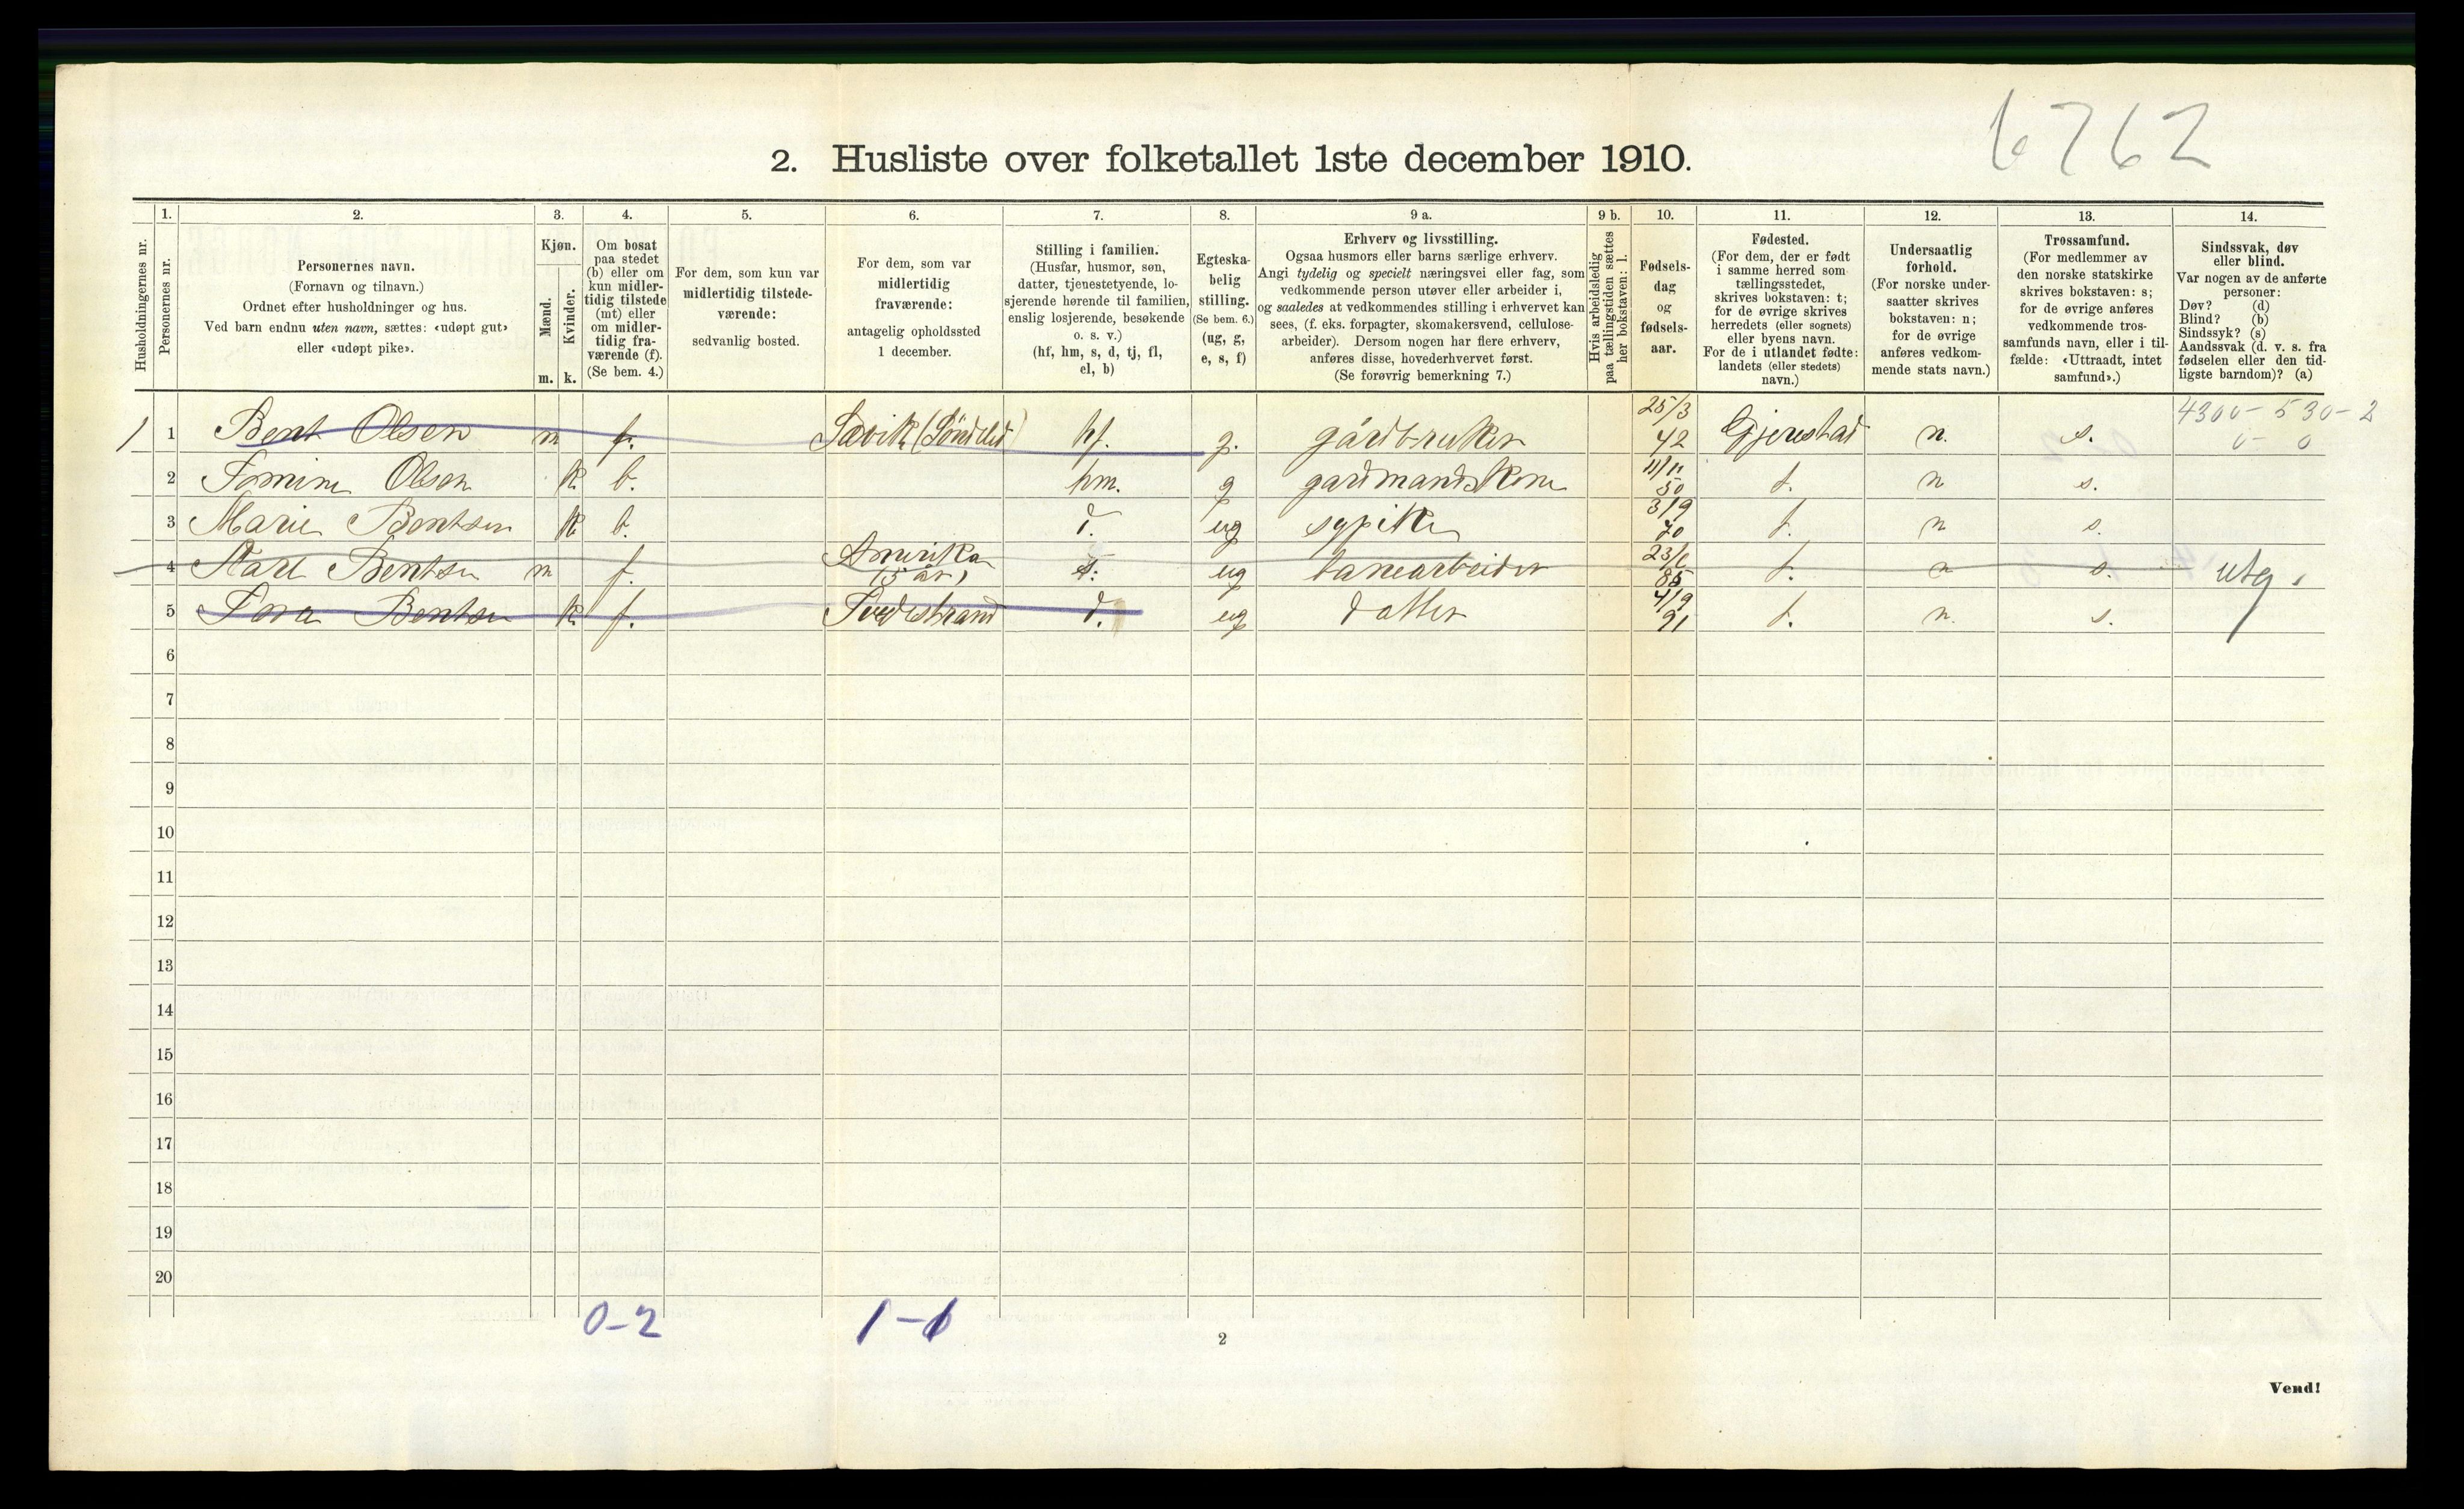 6762
2. Husliste over folketallet 1ste december 1910.
Husholdningernes nr.
1.
Personernes nr.
2.
Personernes navn.
(Fornavn og tilnavn.)
Ordnet efter husholdninger og hus.
Ved barn endnu uten navn, sættes: «udøpt gut»
eller «udøpt pike».
3.
Kjøn.
Mænd.
Kvinder.
m. k.
4.
Om bosat
paa stedet
(b) eller om
kun midler-
tidig tilstede
(mt) eller
om midler-
tidig fra-
værende (f).
(Se bem. 4.)
5.
For dem, som kun var
midlertidig tilstede-
værende:
sedvanlig bosted.
6.
For dem, som var
midlertidig
fraværende:
antagelig opholdssted
1 december.
7.
Stilling i familien.
(Husfar, husmor, søn,
datter, tjenestetyende, lo-
sjerende hørende til familien,
enslig losjerende, besøkende
o. s. v.)
(hf, hm, s, d, tj, fl,
el, b)
8.
Egteska-
belig
stilling.
(Se bem. 6.)
(ug, g,
e, s, f)
9 a.
Erhverv og livsstilling.
Ogsaa husmors eller barns særlige erhverv.
Angi tydelig og specielt næringsvei eller fag, som
vedkommende person utøver eller arbeider i,
og saaledes at vedkommendes stilling i erhvervet kan
sees, (f. eks. forpagter, skomakersvend, cellulose-
arbeider). Dersom nogen har flere erhverv,
anføres disse, hovederhvervet først.
(Se forøvrig bemerkning 7.)
9 b.
Hvis arbeidsledig
paa tællingstiden sættes
her bokstaven: l.
10.
Fødsels-
dag
og
fødsels-
aar.
11.
Fødested.
(For dem, der er født
i samme herred som
tællingsstedet,
skrives bokstaven: t;
for de øvrige skrives
herredets (eller sognets)
eller byens navn.
For de i utlandet fødte:
landets (eller stedets)
navn.)
12.
Undersaatlig
forhold.
(For norske under-
saatter skrives
bokstaven: n;
for de øvrige
anføres vedkom-
mende stats navn.)
13.
Trossamfund.
(For medlemmer av
den norske statskirke
skrives bokstaven: s;
for de øvrige anføres
vedkommende tros-
samfunds navn, eller i til-
fælde: «Uttraadt, intet
samfund».)
14.
Sindssvak, døv
eller blind.
Var nogen av de anførte
personer:
Døv? (d)
Blind? (b)
Sindssyk? (s)
Aandssvak (d. v. s. fra
fødselen eller den tid-
ligste barndom)? (a)
1 1 Bent Olsen m f. Søvik (Sönddled) hf. g. gårdbruker 25/3 42 Gjerestad n. s. 4300-530-2
0- 0
2 Tomine Olsen k b. hm. g gardmandskone 11/11 50 t. n s.
3 Marie Bentsen k b. d. ug sypike 3/9 70 t. n s.
4 Karl Bentsen m f. Amerika (3 år) s. ug tanearbeider 85 t. n s. utg.
5 Tora Bentsen k f. Tvedestrand d. ug datter 4/9 91 t. n. s.
6
7
8
9
10
11
12
13
14
15
16
17
18
19
20
0-2 1-1
2
Vend!